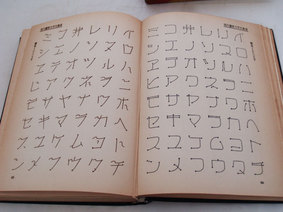 イロハニホヘトチ
リヌルヲワカヨタ
レソツネナラムウ
井ノオクヤマケフ
コエテアサキユメ
ミシヱヒモセスン
イロハニホヘトチ
リヌルヲワカヨタ
レソツネナラムウ
井ノオクヤマケフ
コエテアサキユメ
ミシヱヒモセスン